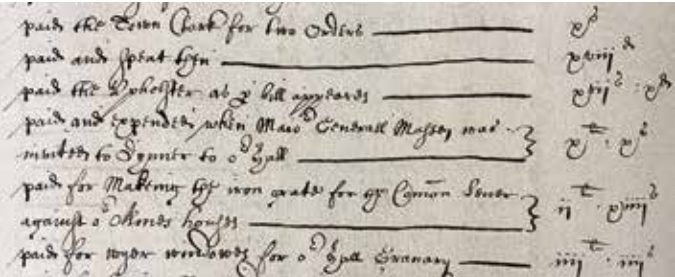 paid the Town Clark for two Orders — xˢ
paid and spent then — xviijᵈ
paid the Upholster as p bill appeares — xijˢ · xᵈ
paid and expended when Maioʳ Generall Massey was
invited to Dynner to oʳ Hall — xˡⁱ · xˢ
paid for Makeing the iron grate for yᵉ Comon Sewer
against oʳ Almes houses — ijˡⁱ · xiiijˢ
paid for wyer windowes for oʳ Hall Granary — iiijˡⁱ · iiijˢ